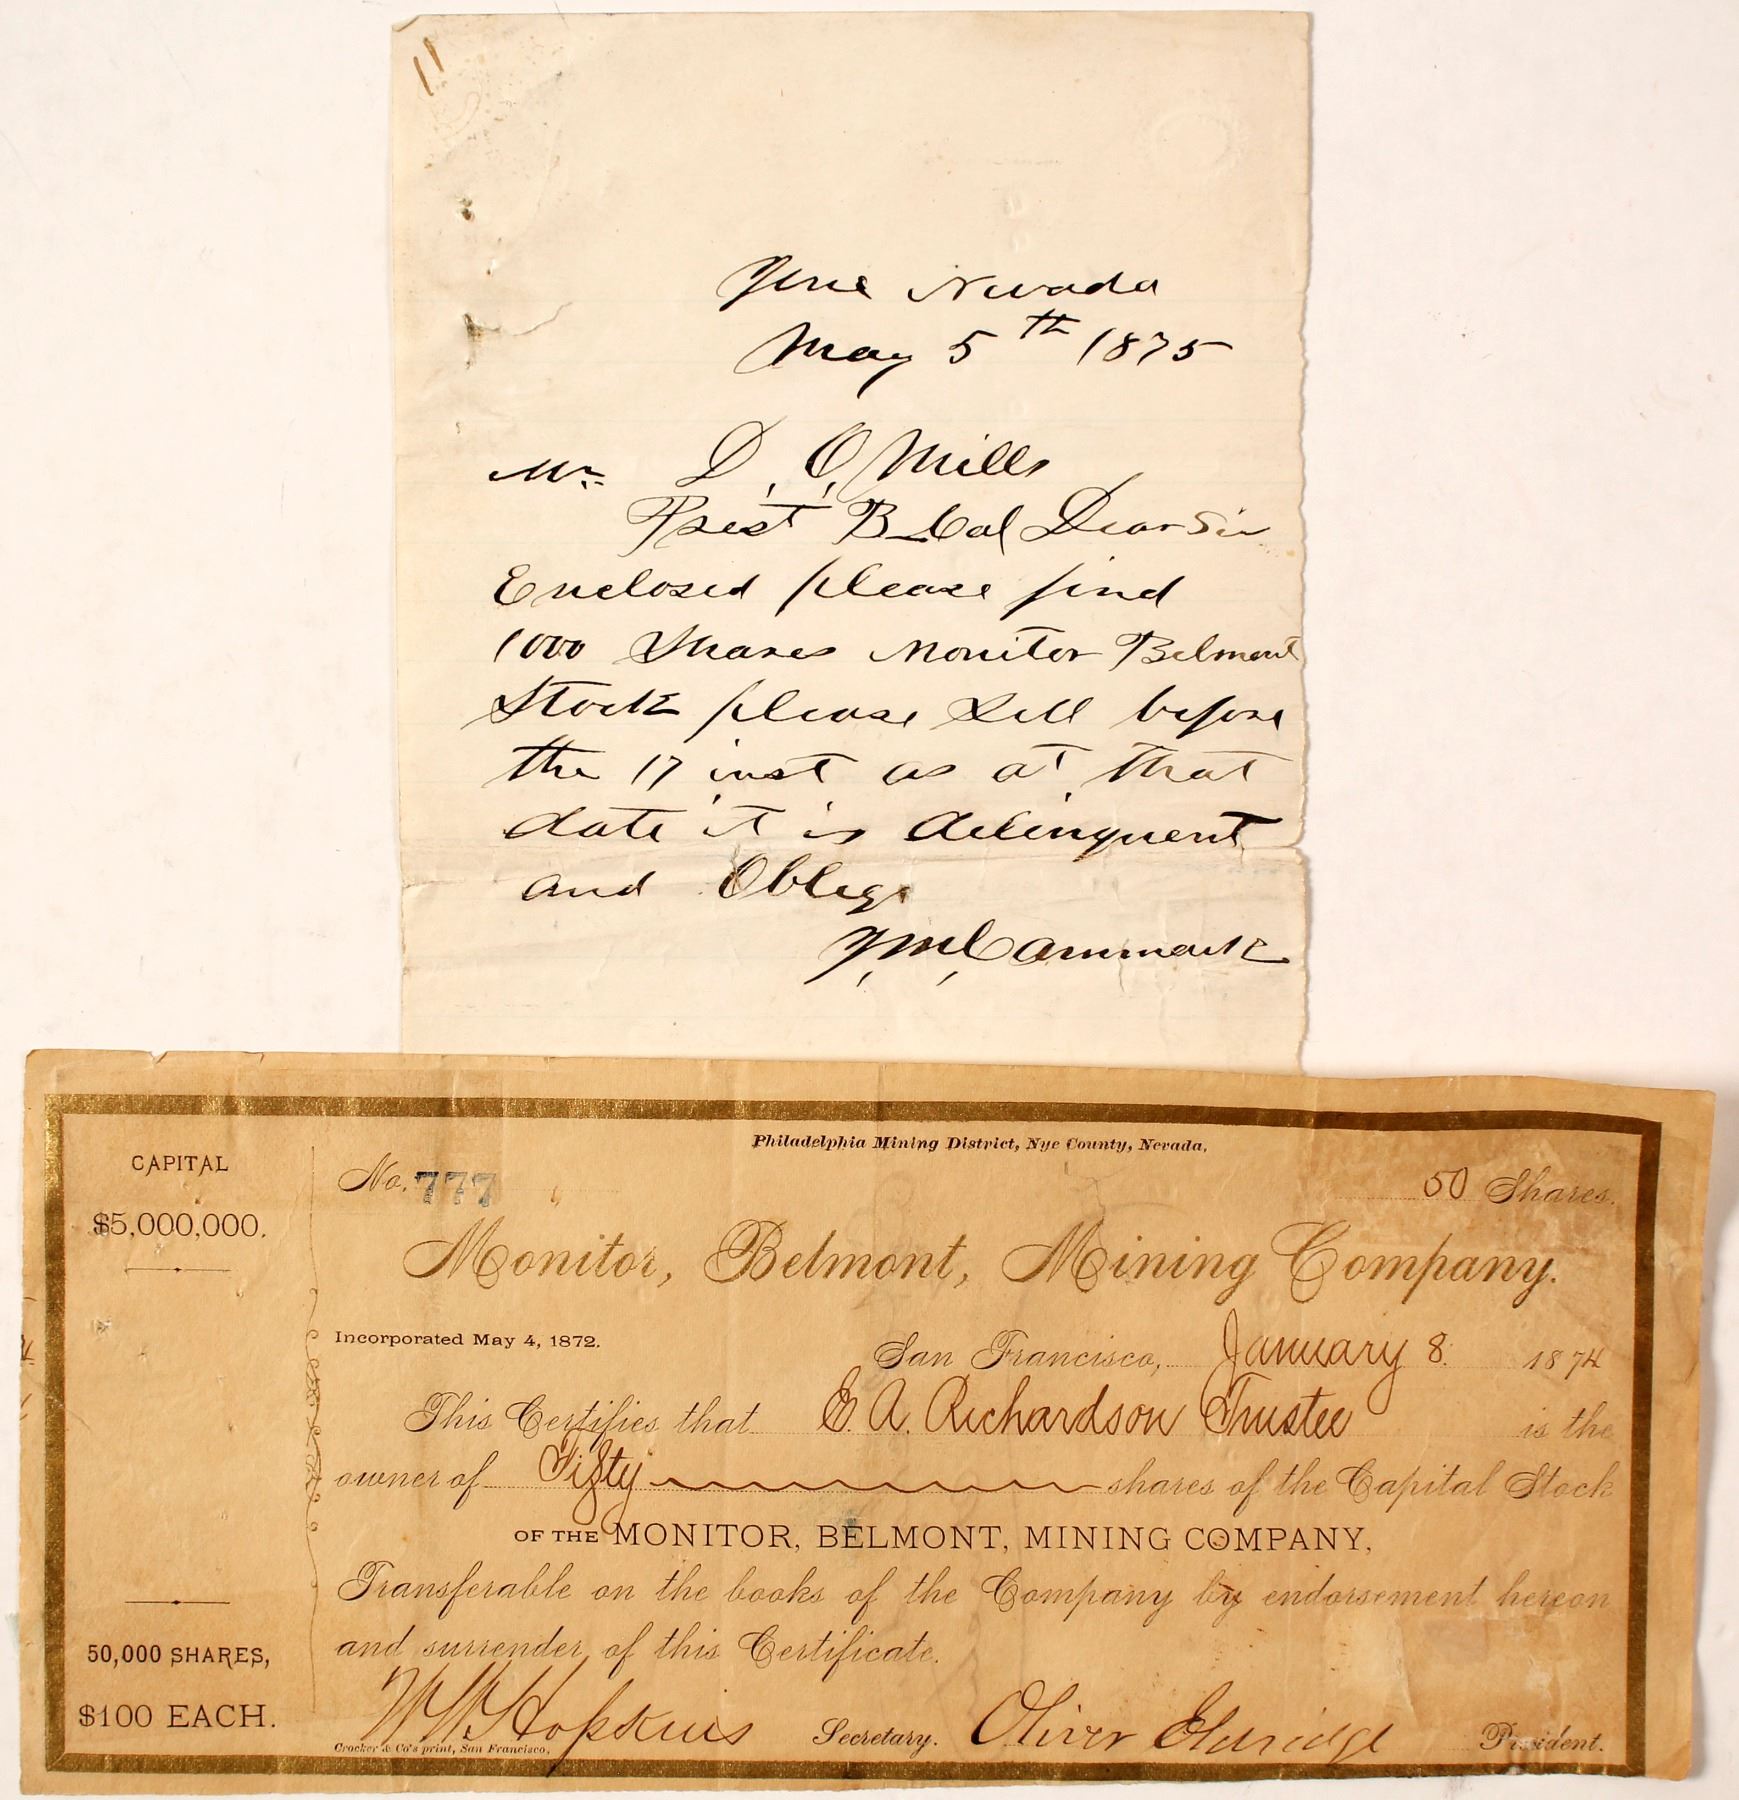 11
Nevada
May 5th 1875
Mr. D. O. Mills
Prest B Cal Dear Sir
Enclosed please find
1000 Shares Monitor Belmont
Stock please Sell before
the 17 inst as at that
date it is delinquent
and Oblige
Cammack
Philadelphia Mining District, Nye County, Nevada.
CAPITAL
No. 777
50 Shares.
$5,000,000.
Monitor, Belmont, Mining Company.
Incorporated May 4, 1872.
San Francisco, January 8. 1874
This Certifies that E. A. Richardson Trustee is the
owner of Fifty shares of the Capital Stock
OF THE MONITOR, BELMONT, MINING COMPANY,
Transferable on the books of the Company by endorsement hereon
and surrender of this Certificate.
50,000 SHARES,
$100 EACH.
W W Hopkins Secretary. Oliver Eldridge President.
Crocker & Co's print, San Francisco.